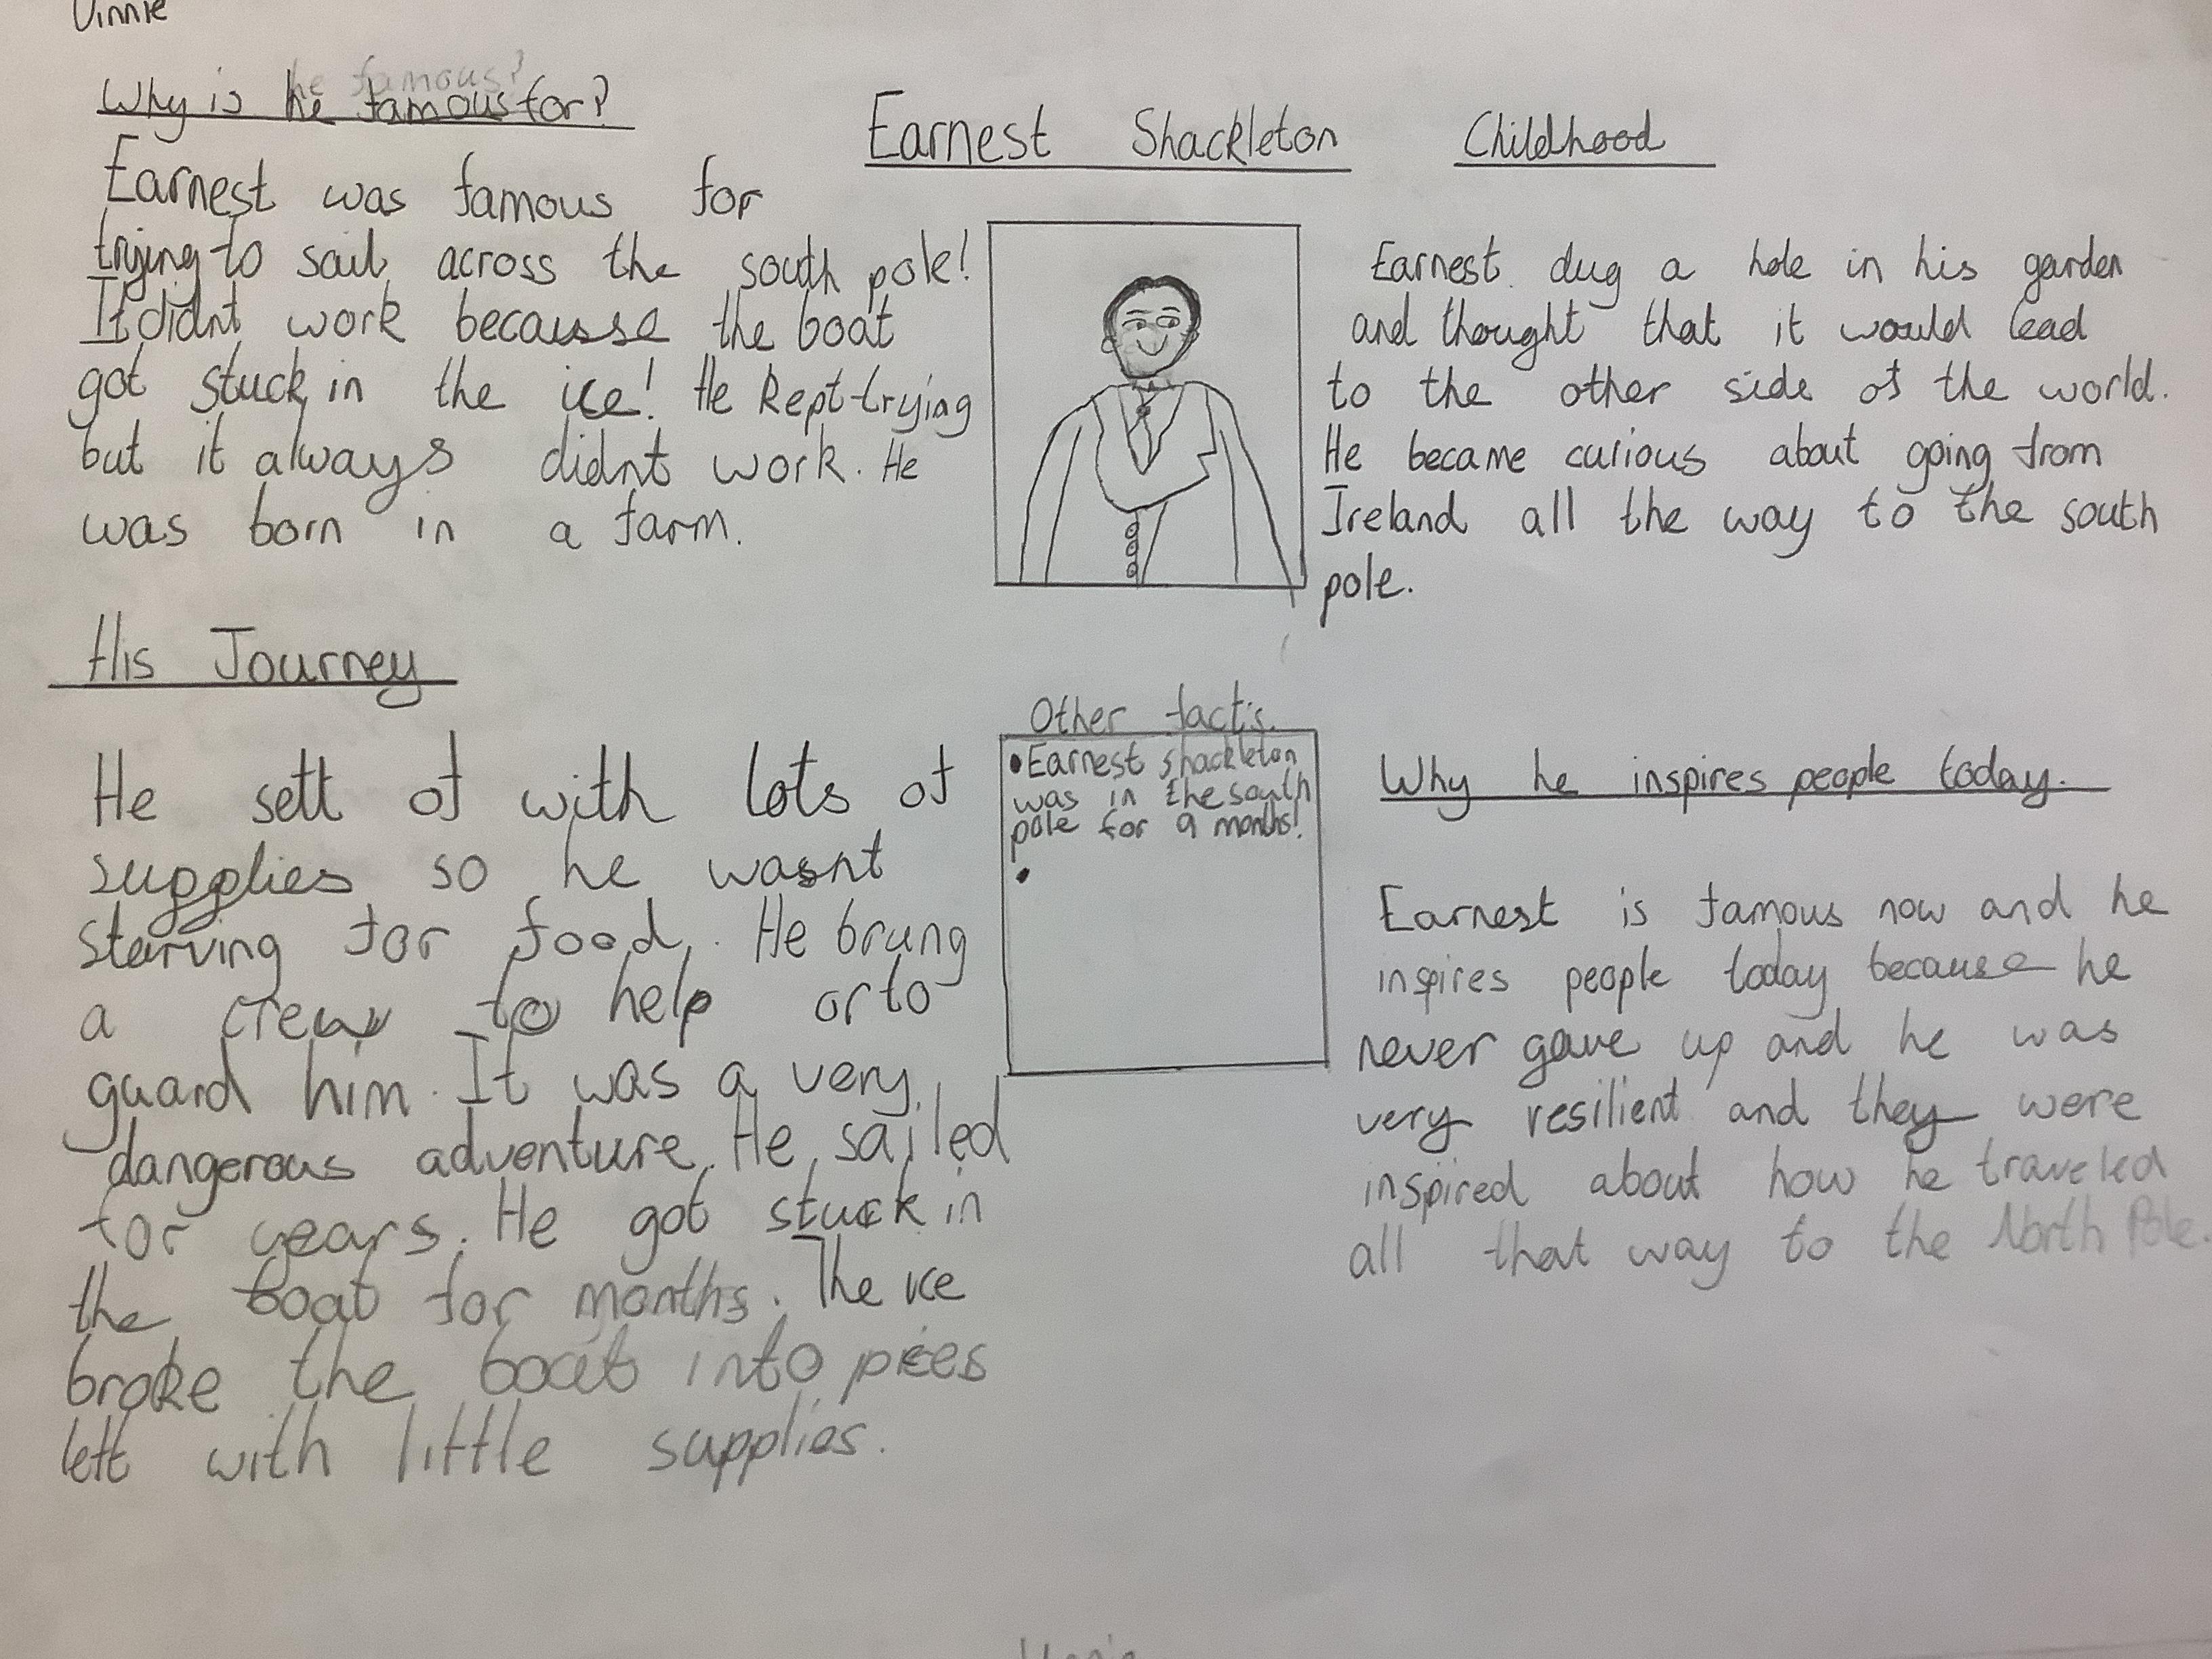 Vinnie
he famous?
Why is he famous for?
Earnest was famous for
trying to sail across the south pole!
It didnt work because the boat
got stuck in the ice! He kept trying
but it always didnt work. He
was born in a farm.
Earnest Shackleton
Childhood
Earnest dug a hole in his garden
and thought that it would lead
to the other side of the world.
He became curious about going from
Ireland all the way to the south
pole.
His Journey
He sett of with lots of
supplies so he wasnt
starving for food. He brung
a crew to help or to
guard him. It was a very
dangerous adventure. He sailed
for years. He got stuck in
the boat for months. The ice
broke the boat into pices
left with little supplies.
Other fact's.
•Earnest shackleton
was in the south
pole for 9 months!
•
Why he inspires people today.
Earnest is famous now and he
inspires people today because he
never gave up and he was
very resilient and they were
inspired about how he traveled
all that way to the North Pole.